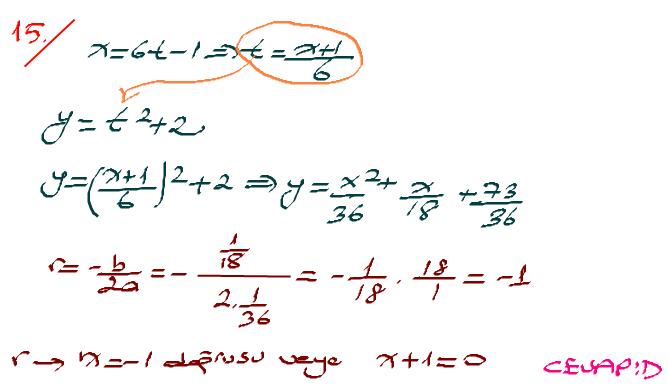 15./ x=6t-1 ⇒ t=\frac{x+1}{6}
y=t²+2
y=(\frac{x+1}{6})²+2 ⇒ y=\frac{x²}{36}+\frac{x}{18}+\frac{73}{36}
r=-\frac{b}{2a}=-\frac{\frac{1}{18}}{2.\frac{1}{36}}=-\frac{1}{18}.\frac{18}{1}=-1
r→ x=-1 doğrusu veya x+1=0 CEVAP:D